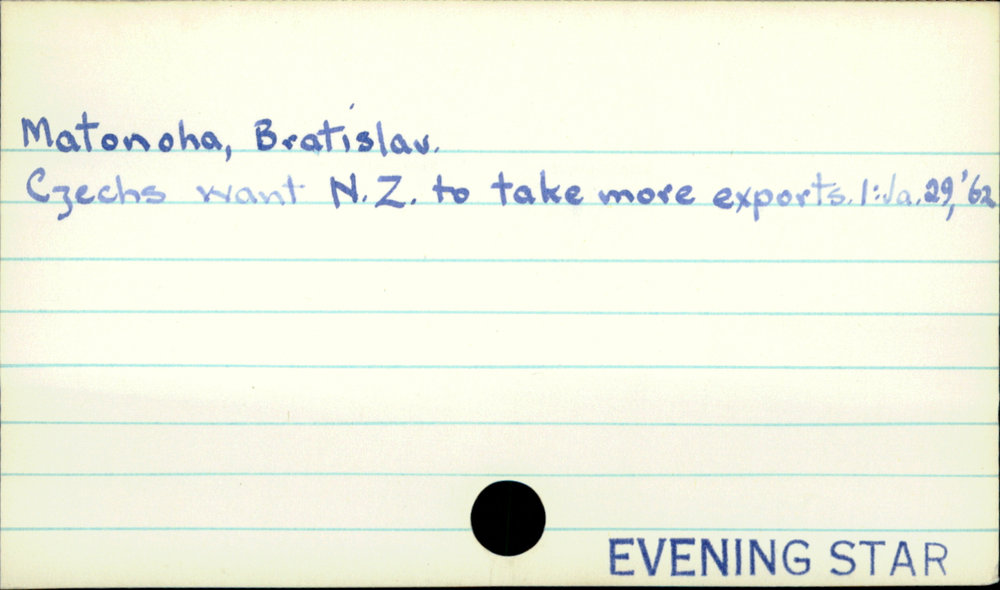 Matonoha, Bratislav.
Czechs want N.Z. to take more exports. 1:Ja.29,'62
EVENING STAR